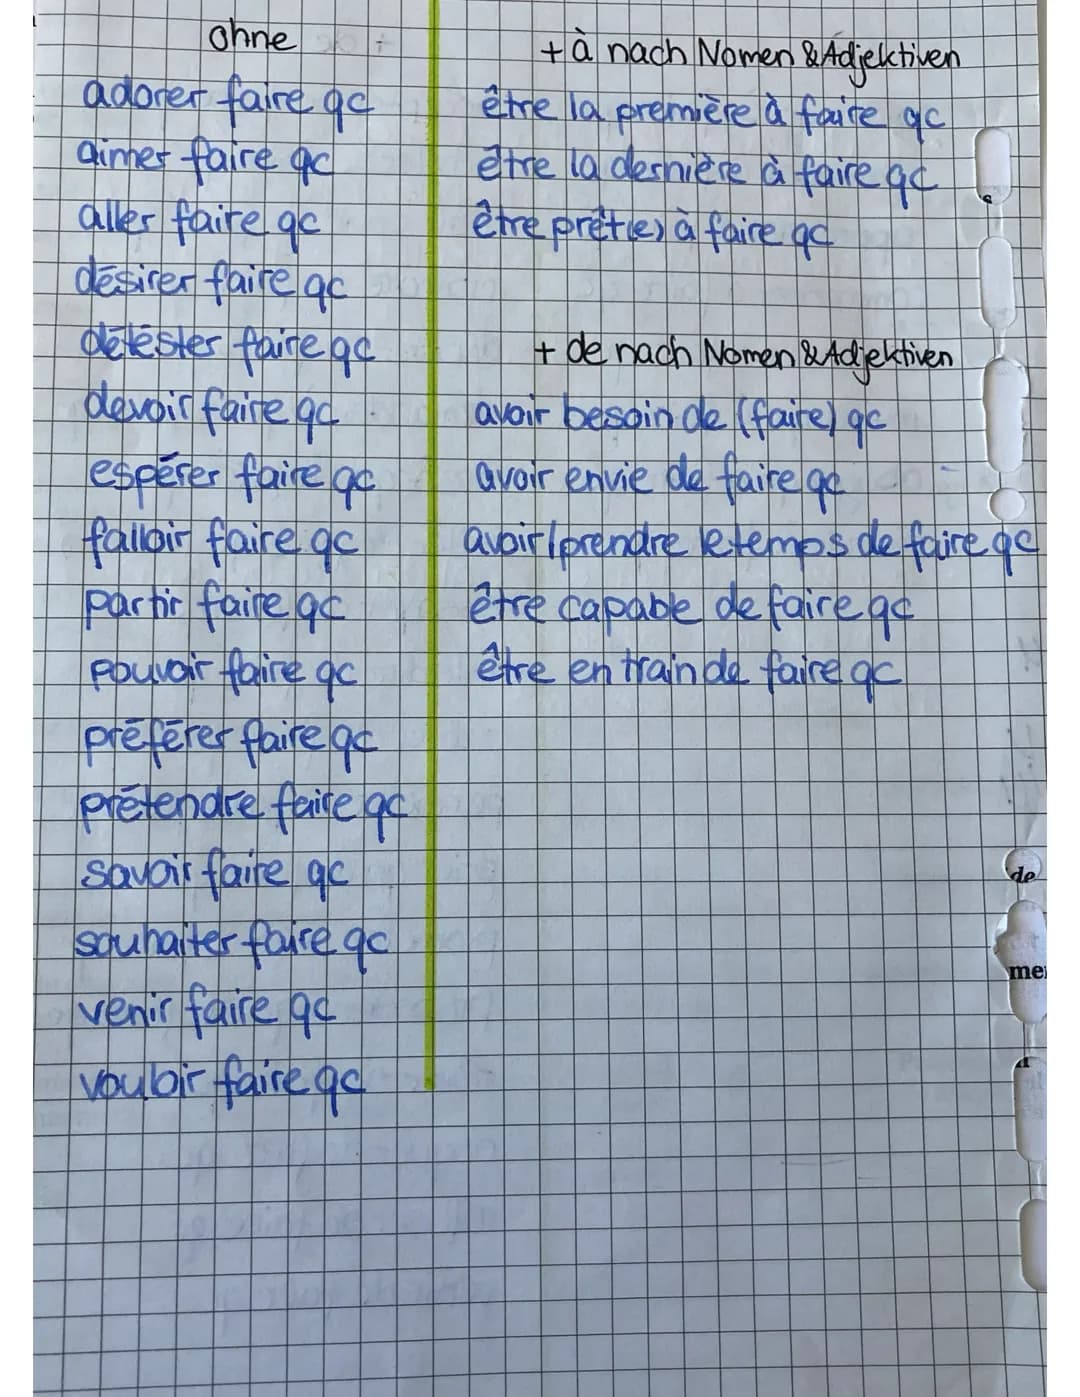 ohne
adorer faire qc
aimer faire qc
aller faire qc
désirer faire qc
détéster faire qc
devoir faire qc
espérer faire qc
falloir faire qc
partir faire qc
pouvoir faire qc
préférer faire qc
prétendre faire qc
savoir faire qc
souhaiter faire qc
venir faire qc
vouloir faire qc
+ à nach Nomen & Adjektiven
être la première à faire qc
être la dernière à faire qc
être prêt(e) à faire qc
+ de nach Nomen & Adjektiven
avoir besoin de (faire) qc
avoir envie de faire qc
avoir/prendre le temps de faire qc
être capable de faire qc
être en train de faire qc
de